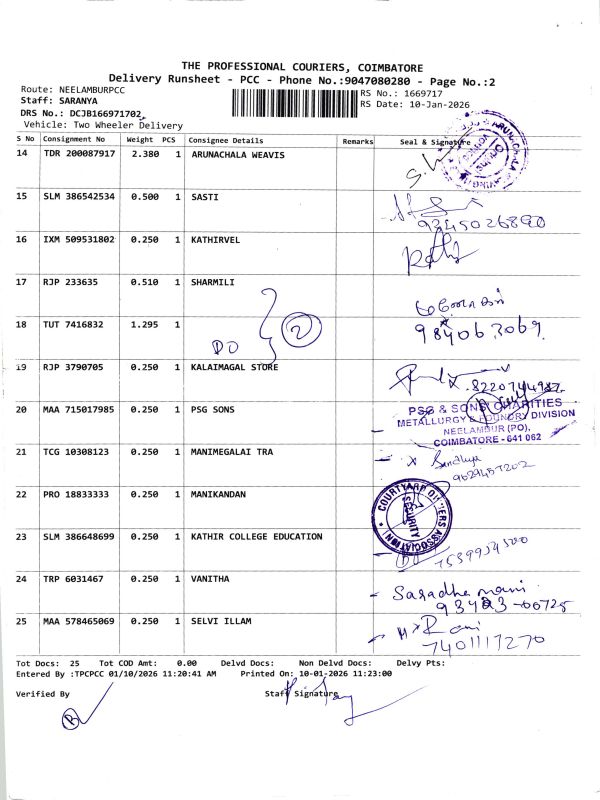 THE PROFESSIONAL COURIERS, COIMBATORE
Delivery Runsheet - PCC - Phone No.:9047080280 - Page No.:2
Route: NEELAMBURPCC
Staff: SARANYA
DRS No.: DCJB166971702
Vehicle: Two Wheeler Delivery
RS No.: 1669717
RS Date: 10-Jan-2026
S No Consignment No Weight PCS Consignee Details Remarks Seal & Signature
14 TDR 200087917 2.380 1 ARUNACHALA WEAVIS
15 SLM 386542534 0.500 1 SASTI
9345026890
16 IXM 509531802 0.250 1 KATHIRVEL
17 RJP 233635 0.510 1 SHARMILI
18 TUT 7416832 1.295 1
DO 2
19 RJP 3790705 0.250 1 KALAIMAGAL STORE
20 MAA 715017985 0.250 1 PSG SONS
PSG & SONS CHARITIES
METALLURGY & FOUNDRY DIVISION
NEELAMBUR (PO),
COIMBATORE - 641 062
21 TCG 10308123 0.250 1 MANIMEGALAI TRA
22 PRO 18833333 0.250 1 MANIKANDAN
COURTYARD OWNERS ASSOCIATION
SECURITY
23 SLM 386648699 0.250 1 KATHIR COLLEGE EDUCATION
24 TRP 6031467 0.250 1 VANITHA
Saradha mani
25 MAA 578465069 0.250 1 SELVI ILLAM
Rani
7401117270
Tot Docs: 25 Tot COD Amt: 0.00 Delvd Docs: Non Delvd Docs: Delvy Pts:
Entered By :TPCPCC 01/10/2026 11:20:41 AM Printed On: 10-01-2026 11:23:00
Verified By Staff Signature